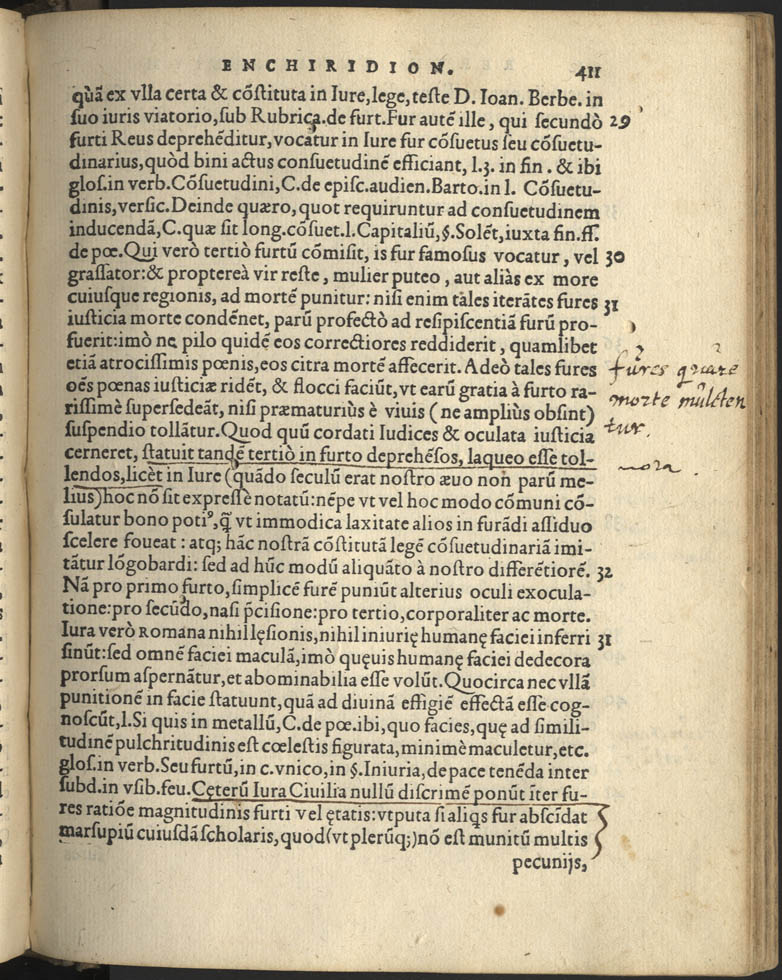 ENCHIRIDION. 411
quā ex vlla certa & cōstituta in Iure, lege, teste D. Ioan. Berbe. in
suo iuris viatorio, sub Rubrica. de furt. Fur autē ille, qui secundò 29
furti Reus deprehēditur, vocatur in Iure fur cōsuetus seu cōsuetu-
dinarius, quòd bini actus consuetudinē efficiant, l.3. in fin. & ibi
glos. in verb. Cōsuetudini, C. de episc. audien. Barto. in l. Cōsuetu-
dinis, versic. Deinde quæro, quot requiruntur ad consuetudinem
inducendā, C. quæ sit long. cōsuet. l. Capitaliū, §. Solēt, iuxta fin. ff.
de pœ. Qui verò tertiò furtū cōmisit, is fur famosus vocatur, vel 30
grassator: & proptereà vir reste, mulier puteo, aut aliàs ex more
cuiusque regionis, ad mortē punitur: nisi enim tales iterātes fures 31
iusticia morte condēnet, parū profectò ad resipiscentiā furū pro-
fuerit: imò ne pilo quidē eos correctiores reddiderit, quamlibet
etiā atrocissimis pœnis, eos citra mortē affecerit. Adeò tales fures
oēs pœnas iusticiæ ridēt, & flocci faciūt, vt earū gratia à furto ra-
rissimè supersedeāt, nisi præmaturiùs è viuis (ne ampliùs obsint)
suspendio tollātur. Quod quū cordati Iudices & oculata iusticia
cerneret, statuit tandē tertiò in furto deprehēsos, laqueo esse tol-
lendos, licèt in Iure (quādo seculū erat nostro æuo non parū me-
lius) hoc nō sit expressè notatū: nēpe vt vel hoc modo cōmuni cō-
sulatur bono potiꝰ, q̄ vt immodica laxitate alios in furādi assiduo
scelere foueat: atq; hāc nostrā cōstitutā legē cōsuetudinariā imi-
tātur lōgobardi: sed ad hūc modū aliquāto à nostro differētiorē. 32
Nā pro primo furto, simplicē furē puniūt alterius oculi exocula-
tione: pro secūdo, nasi p̄cisione: pro tertio, corporaliter ac morte.
Iura verò ROMANA nihil lęsionis, nihil iniurię humanę faciei inferri 31
sinūt: sed omnē faciei maculā, imò quęuis humanę faciei dedecora
prorsum aspernātur, et abominabilia esse volūt. Quocirca nec vllā
punitionē in facie statuunt, quā ad diuinā effigiē effectā esse cog-
noscūt, l. Si quis in metallū, C. de pœ. ibi, quo facies, quę ad simili-
tudinē pulchritudinis est cœlestis figurata, minimè maculetur, etc.
glos. in verb. Seu furtū, in c. vnico, in §. Iniuria, de pace tenēda inter
subd. in vsib. feu. Cęterū Iura Ciuilia nullū discrimē ponūt īter fu-
res ratiōe magnitudinis furti vel ętatis: vtputa si aliq̄s fur abscīdat
marsupiū cuiusdā scholaris, quod (vt plerūq;) nō est munitū multis
pecunijs,
fures quare
morte mulcten
tur.
nora